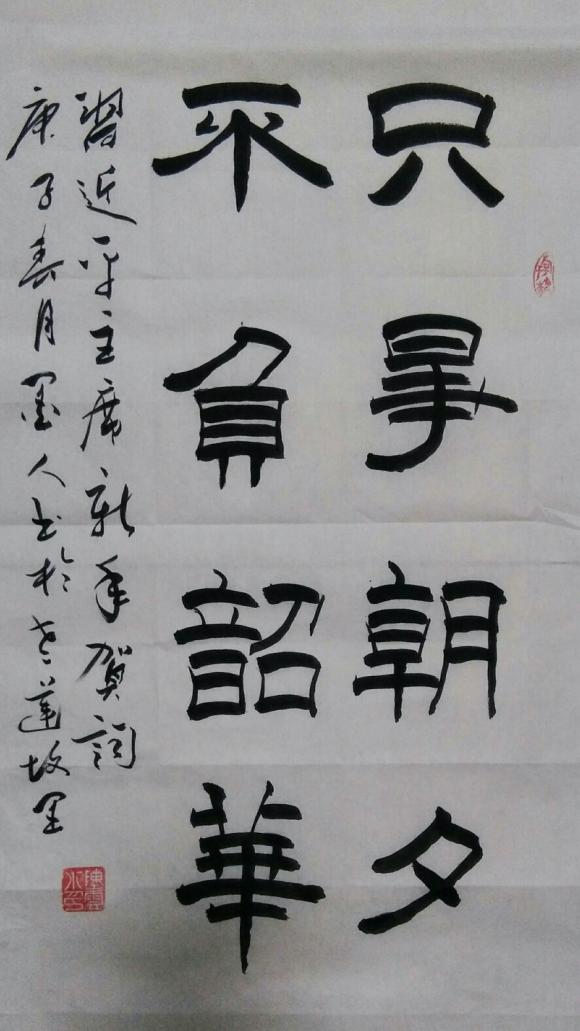 只争朝夕
不負韶華
習近平主席新年賀詞
庚子春月墨人书於老蓮故里